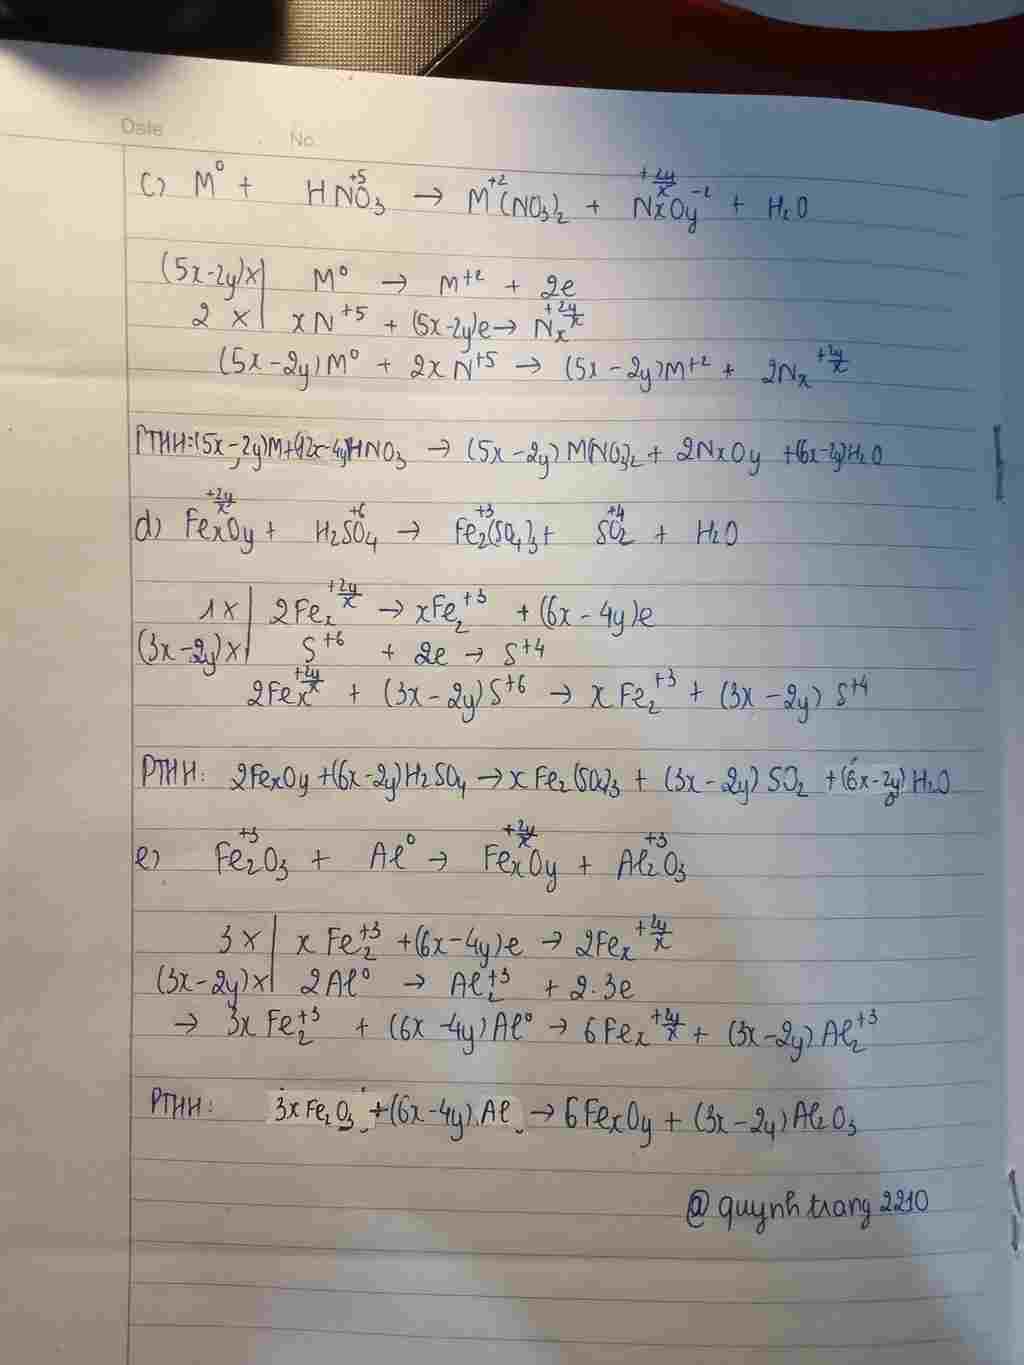 Date
No.
c) M⁰ + HN⁺⁵O₃ → M⁺²(NO₃)₂ + Nₓ⁺²ʸ/ˣOy⁻² + H₂O
(5x-2y)x | M⁰ → M⁺² + 2e
2 x | xN⁺⁵ + (5x-2y)e → Nₓ⁺²ʸ/ˣ
(5x-2y)M⁰ + 2xN⁺⁵ → (5x-2y)M⁺² + 2Nₓ⁺²ʸ/ˣ
PTHH: (5x-2y)M+(12x-4y)HNO₃ → (5x-2y)M(NO₃)₂ + 2NxOy +(6x-2y)H₂O
d) Feₓ⁺²ʸ/ˣOy + H₂S⁺⁶O₄ → Fe₂⁺³(SO₄)₃ + S⁺⁴O₂ + H₂O
1 x | 2Feₓ⁺²ʸ/ˣ → xFe₂⁺³ + (6x-4y)e
(3x-2y)x | S⁺⁶ + 2e → S⁺⁴
2Feₓ⁺²ʸ/ˣ + (3x-2y)S⁺⁶ → xFe₂⁺³ + (3x-2y)S⁺⁴
PTHH: 2FexOy +(6x-2y)H₂SO₄ → xFe₂(SO₄)₃ + (3x-2y)SO₂ +(6x-2y)H₂O
e) Fe₂⁺³O₃ + Al⁰ → Feₓ⁺²ʸ/ˣOy + Al₂⁺³O₃
3 x | xFe₂⁺³ +(6x-4y)e → 2Feₓ⁺²ʸ/ˣ
(3x-2y)x | 2Al⁰ → Al₂⁺³ + 2.3e
→ 3xFe₂⁺³ + (6x-4y)Al⁰ → 6Feₓ⁺²ʸ/ˣ + (3x-2y)Al₂⁺³
PTHH: 3xFe₂O₃ +(6x-4y)Al → 6FexOy + (3x-2y)Al₂O₃
@quynhtrang2210